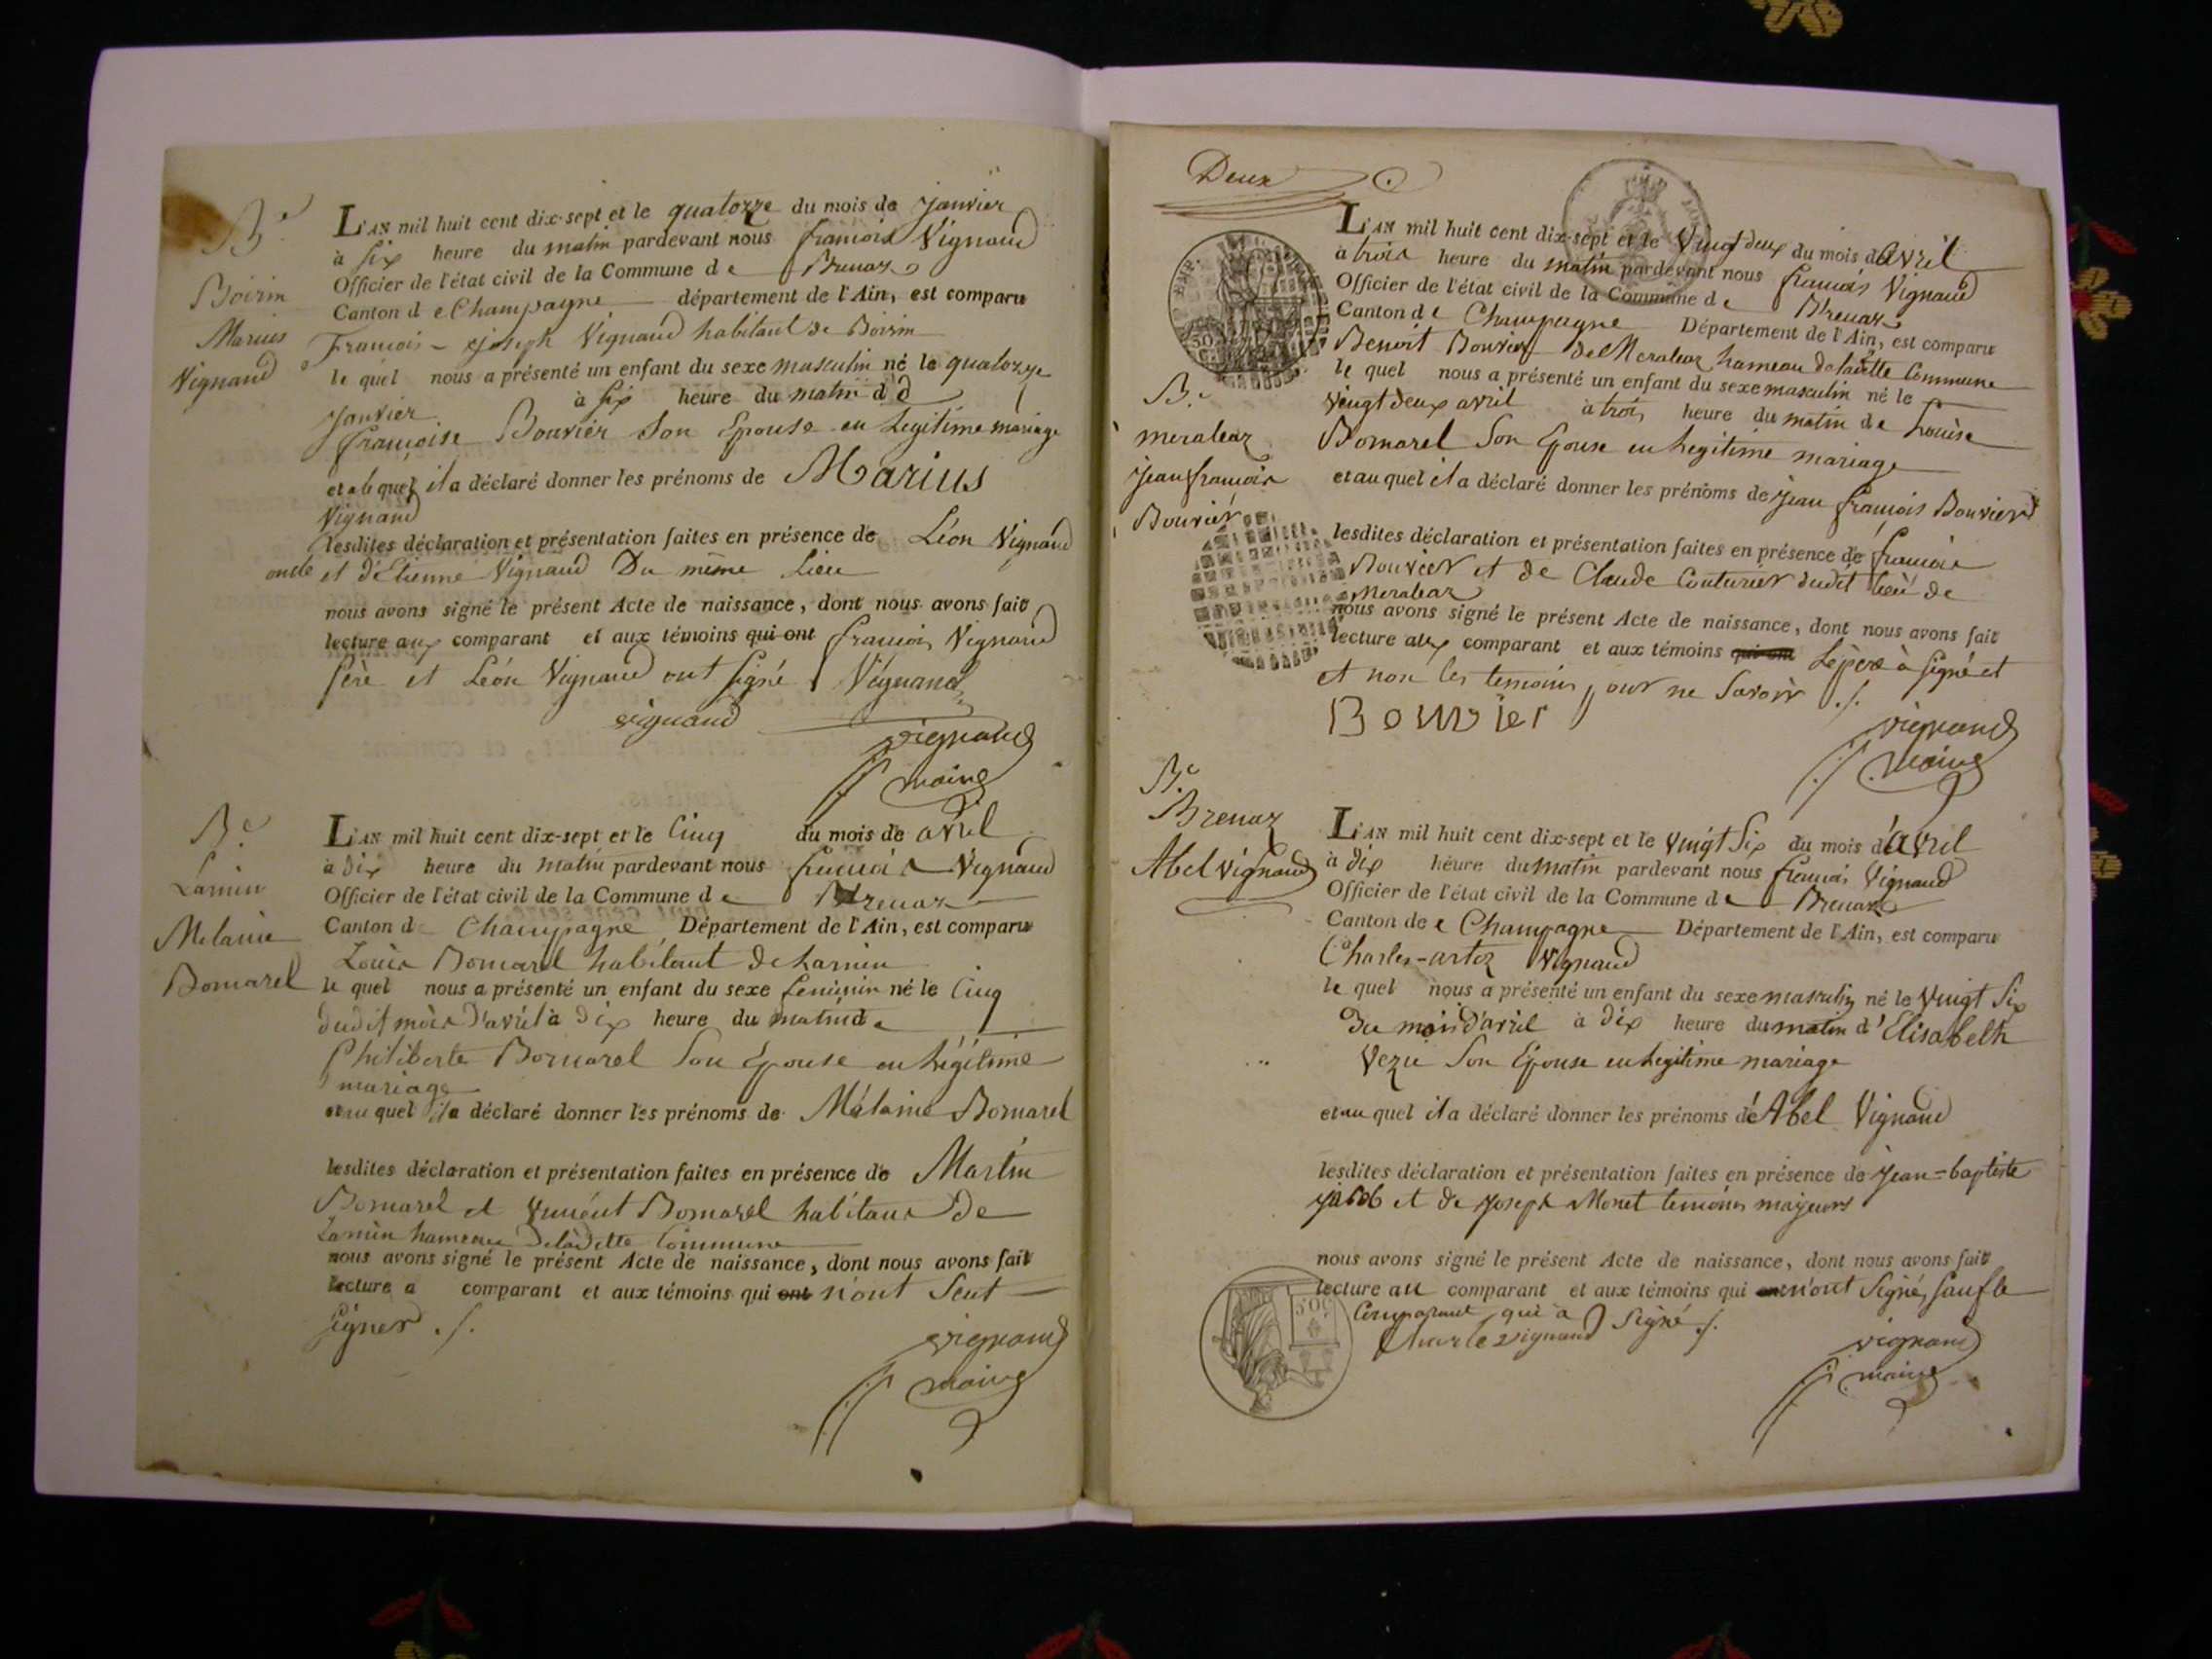 B.e
Boirin
Marius
Vignaud
L'AN mil huit cent dix-sept et le quatorze du mois de janvier
à six heure du matin pardevant nous françois Vignaud
Officier de l'état civil de la Commune de Brenaz
Canton de Champagne département de l'Ain, est comparu
François-joseph Vignaud habitant de Boirin
le quel nous a présenté un enfant du sexe masculin né le quatorze
janvier à six heure du matin d
françoise Bouvier Son Epouse en Legitime mariage
et a le quel il a déclaré donner les prénoms de Marius
Vignaud
lesdites déclaration et présentation faites en présence de Léon Vignaud
oncle et d'Etienne Vignaud Du même Lieu
nous avons signé le présent Acte de naissance, dont nous avons fait
lecture aux comparant et aux témoins qui ont françois Vignaud
père et Léon Vignaud ont signé Vignaud
vignaud
vignaud
maire
B.e
Lamin
Melanie
Bornarel
L'AN mil huit cent dix-sept et le Cinq du mois de avril
à dix heure du matin pardevant nous françois Vignaud
Officier de l'état civil de la Commune de Brenaz
Canton de Champagne Département de l'Ain, est comparu
Louis Bornarel habitant de Lamin
le quel nous a présenté un enfant du sexe feminin né le Cinq
dudit mois d'avril à dix heure du matin de
Philiberte Bornarel Son Epouse en Légitime
mariage
et au quel il a déclaré donner les prénoms de Mélanie Bornarel
lesdites déclaration et présentation faites en présence de Martin
Bornarel et Vincent Bornarel habitans de
Lamin hameau deladitte Commune
nous avons signé le présent Acte de naissance, dont nous avons fait
lecture a comparant et aux témoins qui ont n'ont Seut
signer ./.
vignaud
maire
Deux
B.e
meraleaz
jean françois
Bouvier
L'AN mil huit cent dix-sept et le Vingt deux du mois d'Avril
à trois heure du matin pardevant nous françois Vignaud
Officier de l'état civil de la Commune de Brenaz
Canton de Champagne Département de l'Ain, est comparu
Benoit Bouvier de Meraleaz hameau deladitte Commune
le quel nous a présenté un enfant du sexe masculin né le
vingt deux avril à trois heure du matin de Louise
Bornarel Son Epouse en Legitime mariage
et au quel il a déclaré donner les prénoms de jean françois Bouvier
lesdites déclaration et présentation faites en présence de françois
Bouvier et de Claude Couturier dudit lieu de
Meraleaz
nous avons signé le présent Acte de naissance, dont nous avons fait
lecture aux comparant et aux témoins qui ont Le père à signé et
et non les temoins pour ne Savoir ./.
Bouvier
vignaud
maire
B.e
Brenaz
Abel vignaud
L'AN mil huit cent dix-sept et le vingt Six du mois d'avril
à dix heure du matin pardevant nous françois Vignaud
Officier de l'état civil de la Commune de Brenaz
Canton de e Champagne Département de l'Ain, est comparu
Charles-artoz Vignaud
le quel nous a présenté un enfant du sexe masculin né le Vingt Six
du mois d'avril à dix heure du matin d'Elisabeth
Vezu Son Epouse en Legitime mariage
et au quel il a déclaré donner les prénoms de Abel Vignaud
lesdites déclaration et présentation faites en présence de jean=baptiste
jacob et de joseph Monet temoins majeurs
nous avons signé le présent Acte de naissance, dont nous avons fait
lecture au comparant et aux témoins qui ont n'ont Signé, sauf le
Comparant qui a signé ./.
Charle vignaud
vignaud
maire
50 C